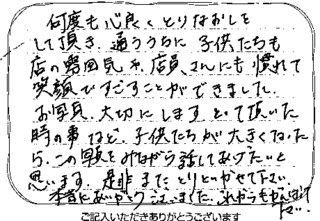 何度も心良くとりなおしを
して頂き、通ううちに子供たちも
店の雰囲気や、店員さんにも慣れて
笑顔ですごすことができました。
お写真、大切にします。とって頂いた
時の事など、子供たちが大きくなった
ら、この写真をみながら話してあげたいと
思います。是非またとりにいかせて下さい。
本当にありがとうございました。これからもがんばって
下さい。
ご記入いただきありがとうございます